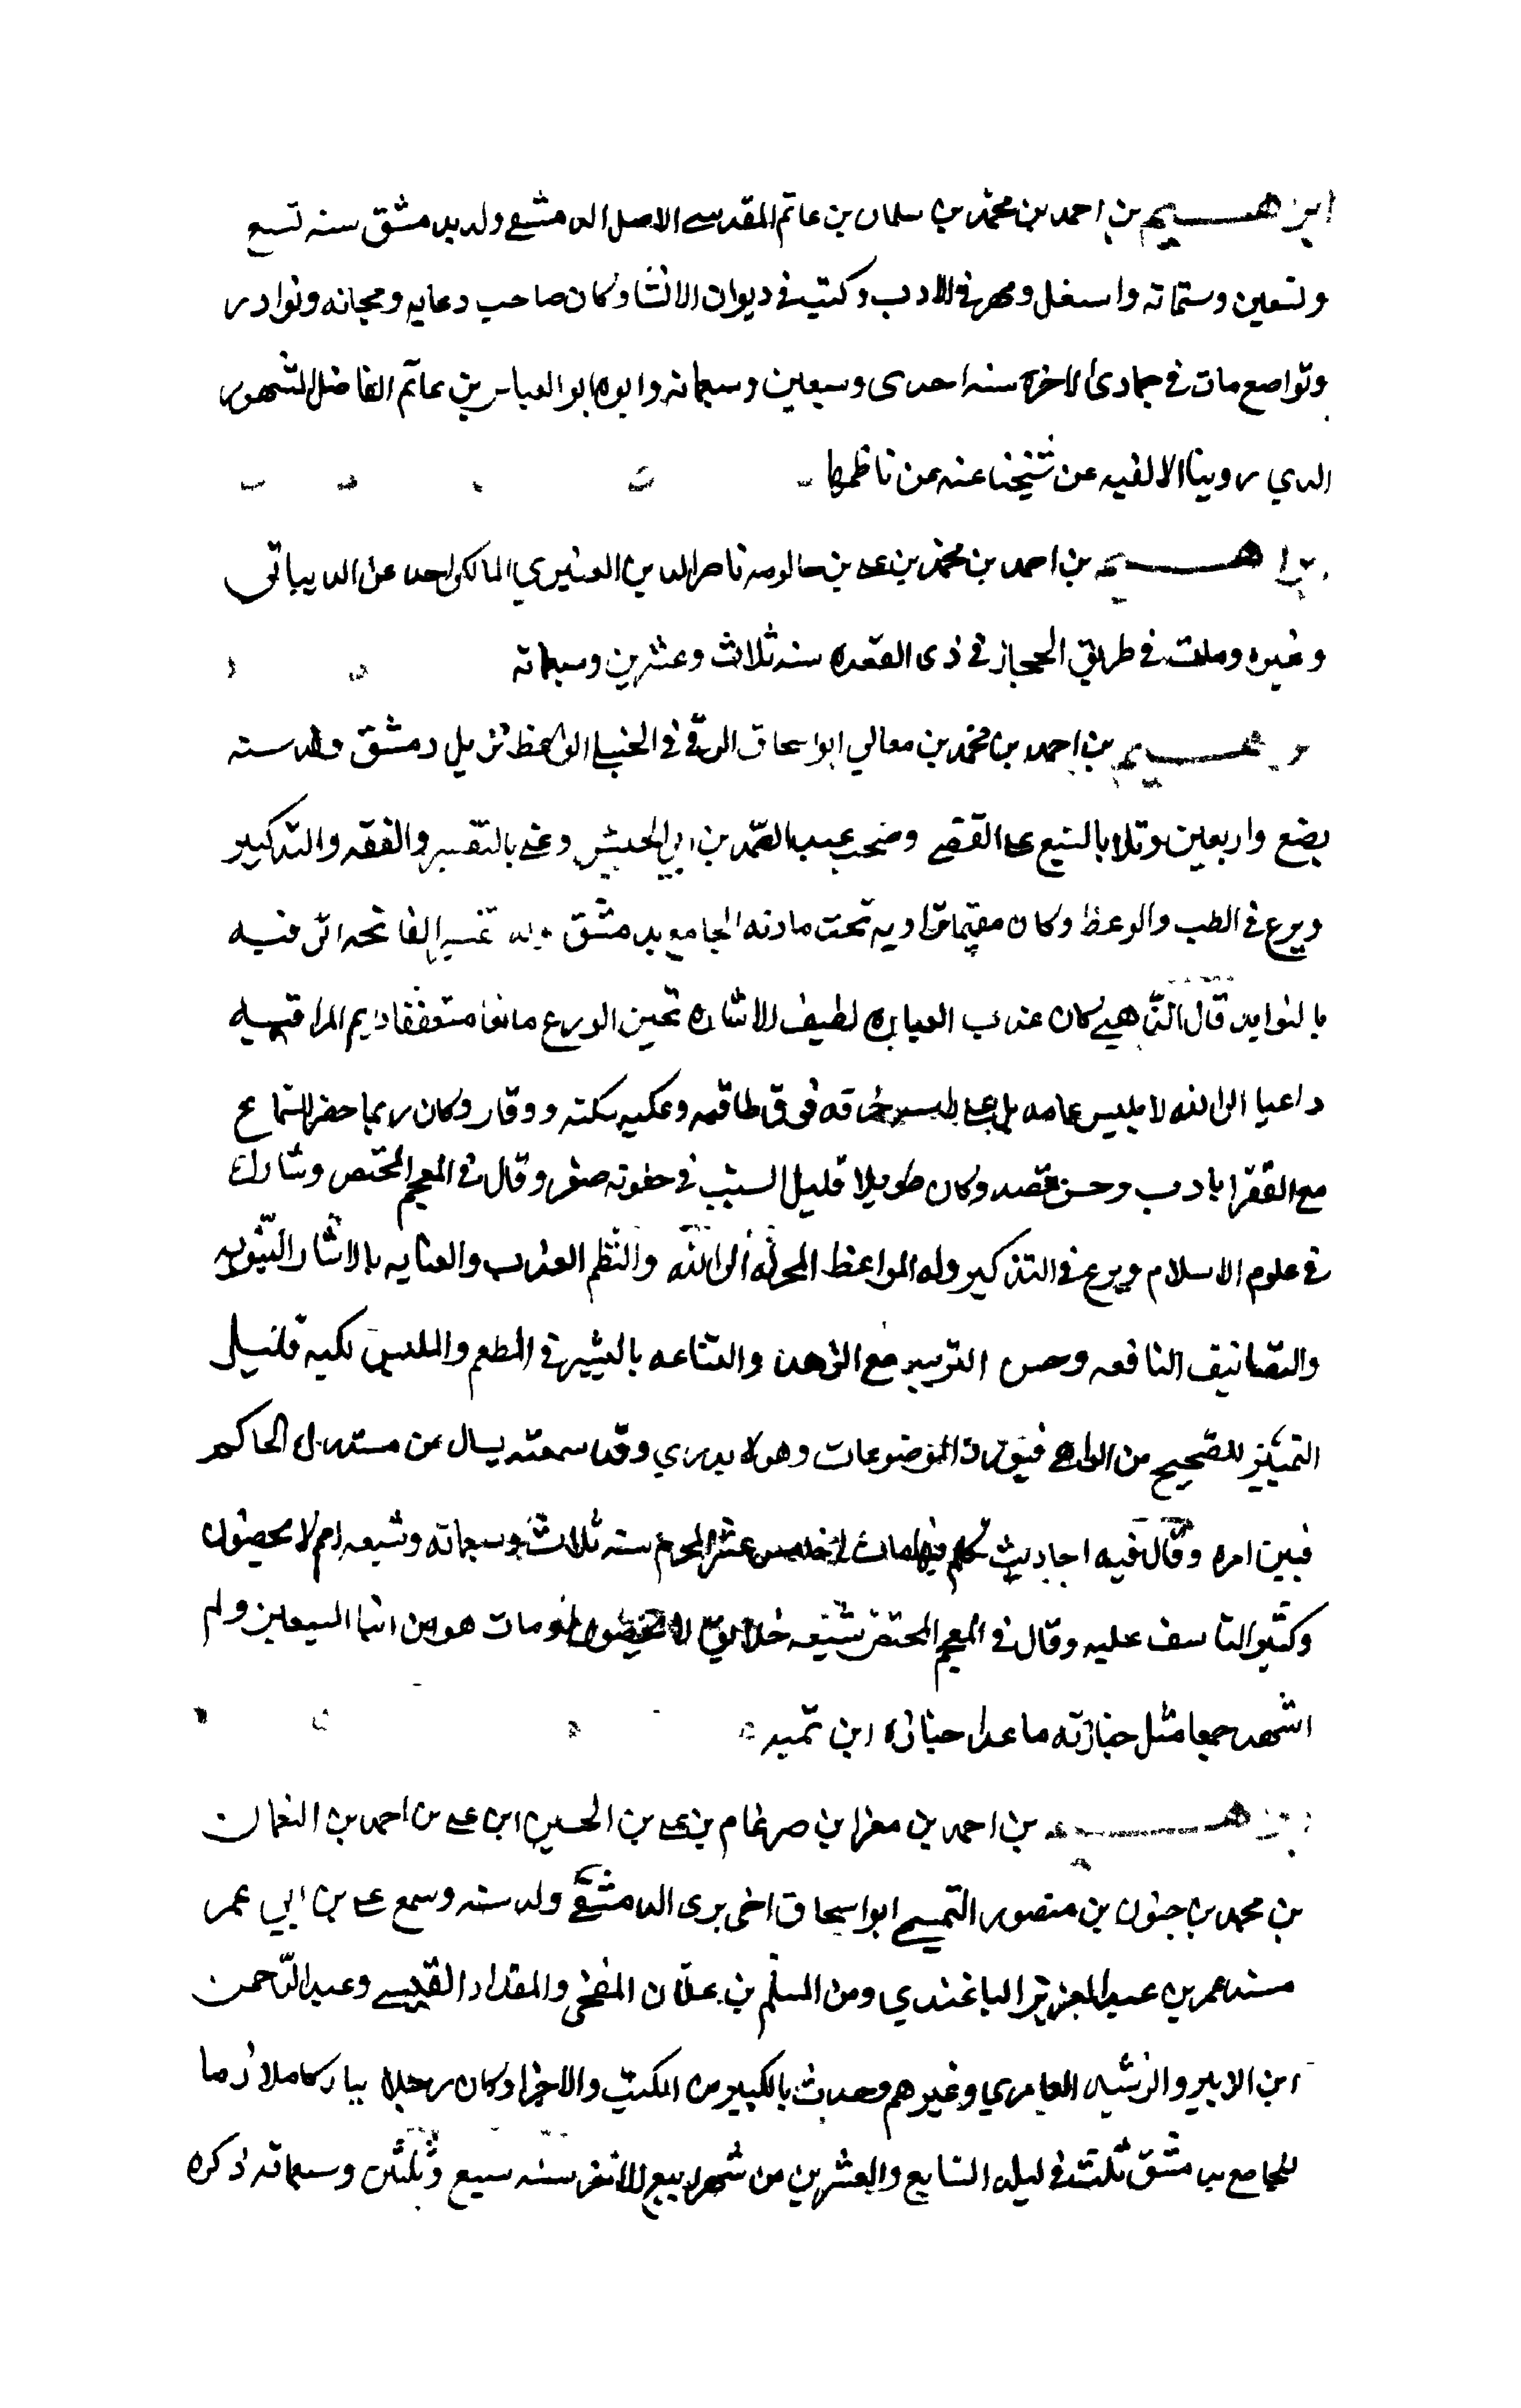 ابرهيم بن احمد بن محمد بن سلمان بن غانم المقدسي الاصل الدمشقي ولد بدمشق سنه تسع
وتسعين وستمائه واشتغل ومهر في الادب وكتب في ديوان الانشا وكان صاحب دعابه ومجانه ونوادر
وتواضع مات في جمادى الاخرة سنه احدى وستين وسبعمائه وابوه ابو العباس بن غانم الفاضل المشهور
الذي روينا الالفيه عن شيخنا عنه عن ناظمها
ابراهيم بن احمد بن محمد بن علي بن ناصر الدين المالكي اخذ عن
وغيره ومات في طريق الحجاز في ذى القعده سنه ثلاث وعشرين وسبعمائه
ابرهيم بن احمد بن محمد بن معالي ابو اسحاق الرقي الحنبلي الواعظ نزيل دمشق ولد سنه
بضع واربعين وتلا بالسبع على القفصي وصحب عبد الصمد بن ابي الجيش وعني بالتفسير والفقه والتذكير
وبرع في الطب والوعظ وكان مقيما بزاويه تحت مادنه الجامع بدمشق وله تفسير الفاتحه اتى فيه
بالفوايد قال الذهبي كان عذب العباره لطيف الاشاره ثخين الورع قانعا متعففا دايم المراقبه
داعيا الى الله لا يلبس عمامه بل على راسه خرقه فوق طاقيه وعليه سكينه ووقار وكان ربما حضر السماع
مع الفقرا بادب وحسن قصد وكان طويلا قليل الشيب في جفونه صغر وقال في المعجم المختص وشارك
في علوم الاسلام وبرع في التذكير وله المواعظ المحركه الى الله والنظم العذب والعنايه بالاثار النبويه
والتصانيف النافعه وحسن التربيه مع الزهد والقناعه باليسير في المطعم والملبس لكنه قليل
التمييز للصحيح من الواهي فيورد الموضوعات وهو لا يدري وقد سمعته يسال عن مستدرك الحاكم
فبين امره وقال فيه احاديث تكلم فيها مات في خامس عشر المحرم سنه ثلاث وسبعمائه وشيعه امم لا يحصون
وكثر التاسف عليه وقال في المعجم المختص شيعه خلائق لا يحصون لو مات هو من ابنا السبعين ولم
اشهد جمعا مثل جنازته ما عدا جنازه ابن تيميه
ابرهيم بن احمد بن بن ضرغام بن علي بن الحسين ابن علي بن احمد بن النعمان
بن محمد بن بن منصور التميمي ابو اسحاق الدمشقي ولد سنه وسمع على بن ابي عمر
مسند عمر بن عبد العزيز الباغندي ومن المسلم بن علان والمقداد القيسي وعبد الرحمن
ابن الزين والرشيد العامري وغيرهم وحدث بالكثير من الكتب والاجزا وكان رجلا مباركا ملازما
للجامع بدمشق مات في ليله السابع والعشرين من شهر ربيع الاخر سنه سبع وثلثين وسبعمائه ذكره